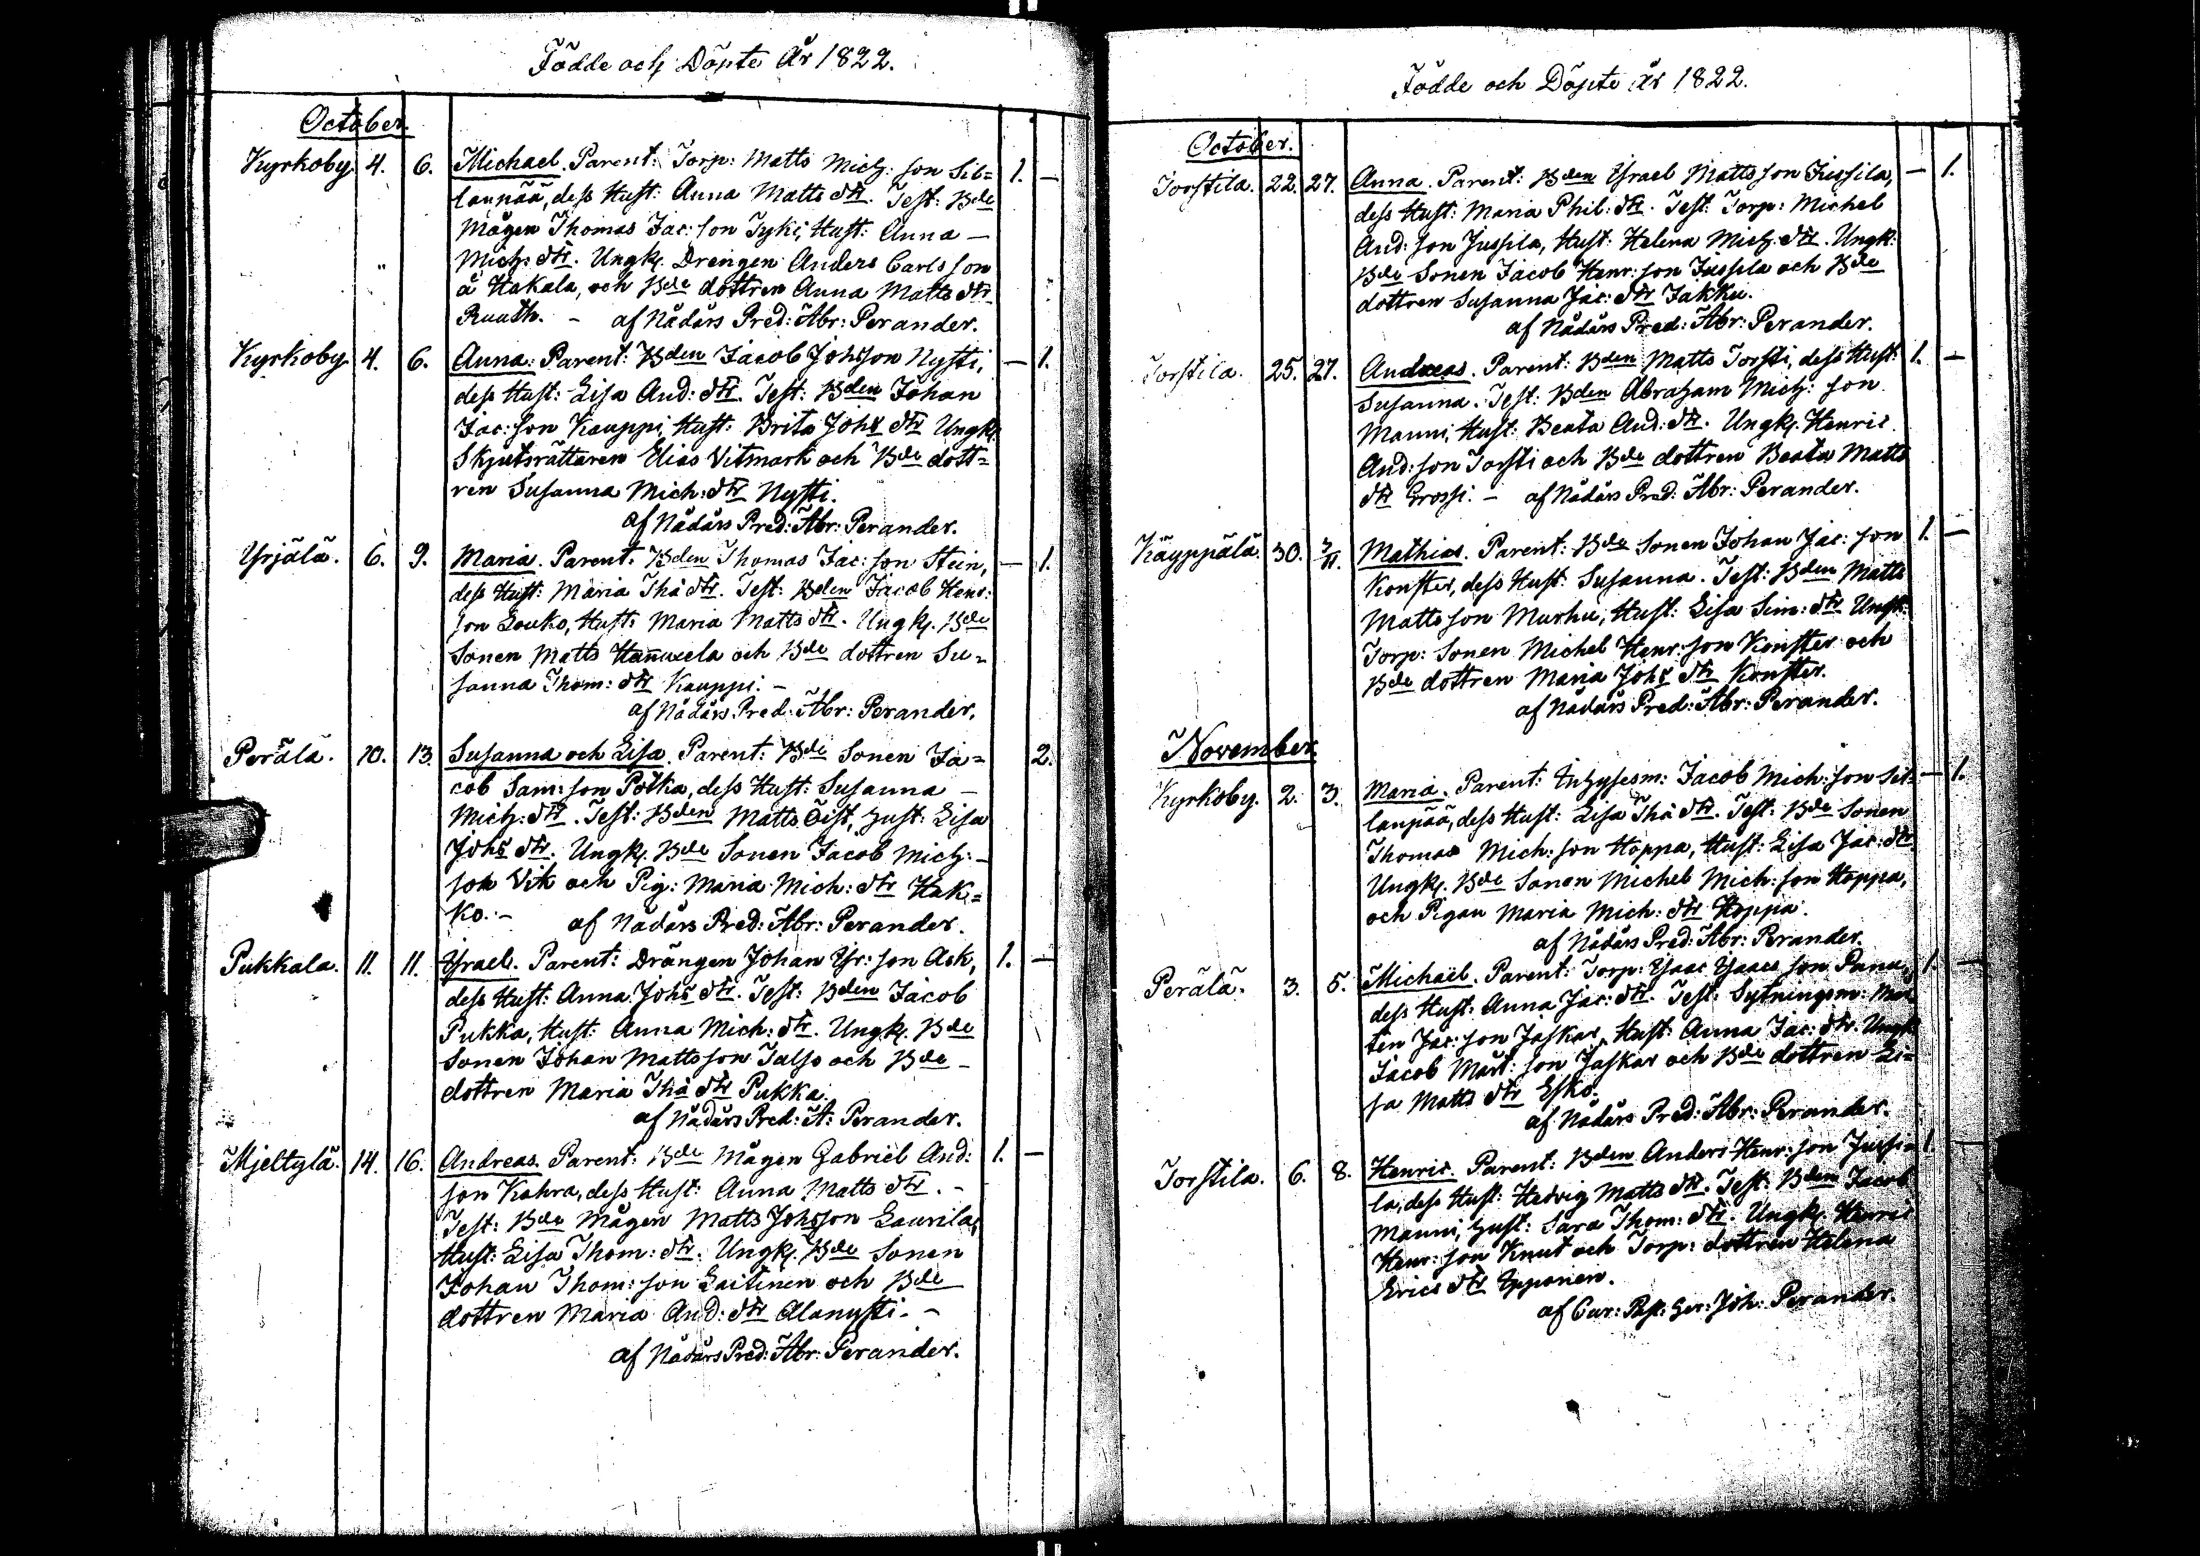 Födde och Döpte År 1822.
October.
Kyrkoby 4. 6. Michael. Parent: Torp: Matts Mich: son Sil= 1. —
lanpää, dess Hust: Anna Matts dtr. Test: Bde
Mågen Thomas Jac: son Tyki, Hust: Anna —
Mich: dtr. Ungk. Drengen Anders Carls son
å Hakala, och Bde dottren Anna Matts dtr
Ruuth. – af Nådårs Pred: Abr: Perander.
Kyrkoby 4. 6. Anna: Parent: Bden Jacob Johsson Nysti, — 1.
dess Hust: Lisa And: dtr. Test: Bden Johan
Jac: son Kauppi, Hust: Brita Johs dtr Ungk.
Skjutsrättaren Elias Vitmark och Bde dott=
ren Susanna Mich: dtr Nysti.
af Nådårs Pred: Abr: Perander.
Yrjälä. 6. 9. Maria. Parent: Bden Thomas Jac: son Stein, — 1.
dess Hust: Maria Tho dtr. Test: Bden Jacob Henr:
son Louko, Hust: Maria Matts dtr. Ungk. Bde
Sonen Matts Hannuxela och Bde dottren Su=
sanna Thom: dtr Kauppi. –
af Nådårs Pred: Abr: Perander.
Perälä. 10. 13. Susanna och Lisa. Parent: Bde Sonen Ja= 2.
cob Sam: son Potka, dess Hust: Susanna –
Mich: dtr. Test: Bden Matts Öist, Hust: Lisa
Johs dtr. Ungk. Bde Sonen Jacob Mich: –
son Vik och Pig: Maria Mich: dtr Hak=
ko. – af Nådårs Pred: Abr: Perander.
Pukkala. 11. 11. Ysrael. Parent: Drängen Johan Ysr: son Ask, 1. —
dess Hust: Anna Johs dtr. Test: Bden Jacob
Pukka, Hust: Anna Mich: dtr. Ungk. Bde
Sonen Johan Mattsson Talso och Bde –
dottren Maria Tho dtr Pukka.
af Nådårs Pred: A: Perander.
Mjeltylä. 14. 16. Andreas. Parent: Bde Mågen Gabriel And: 1. —
son Kahra, dess Hust: Anna Matts dtr. –
Test: Bde Mågen Matts Johsson Laurila,
Hust: Lisa Thom: dtr. Ungk. Bde Sonen
Johan Thom: son Laitinen och Bde
dottren Maria And: dtr Alanysti. –
af Nådårs Pred: Abr: Perander.
Födde och Döpte år 1822.
October.
Torstila. 22. 27. Anna. Parent: Bden Ysrael Mattsson Jussila, — 1.
dess Hust: Maria Phil: dtr. Test: Torp: Michel
And: son Jussila, Hust: Helena Mich: dtr. Ungk:
Bde Sonen Jacob Henr: son Jussila och Bde
dottren Susanna Jac: dtr Jakku.
af Nådårs Pred: Abr: Perander.
Torstila. 25. 27. Andreas. Parent: Bden Matts Torsti, dess Hust: 1. —
Susanna. Test: Bden Abraham Mich: son
Manni, Hust: Beata And: dtr. Ungk. Henric
And: son Torsti och Bde dottren Beata Matts
dtr Grossi. – af Nådårs Pred: Abr: Perander.
Käyppälä. 30. 3/11. Mathias. Parent: Bde Sonen Johan Jac: son 1. —
Konster, dess Hust: Susanna. Test: Bden Matts
Matts son Murhu, Hust: Lisa Sim: dtr Ungk:
Torp: Sonen Michel Henr: son Konster och
Bde dottren Maria Johs dtr Konster.
af Nådårs Pred: Abr: Perander.
November
Kyrkoby. 2. 3. Maria. Parent: Inhysesm: Jacob Mich: son Sil= — 1.
lanpää, dess Hust: Lisa Tho dtr. Test: Bde Sonen
Thomas Mich: son Hoppa, Hust: Lisa Jac: dtr.
Ungk. Bde Sonen Michel Mich: son Hoppa,
och Pigan Maria Mich: dtr Hoppa.
af Nådårs Pred: Abr: Perander.
Perälä. 3. 5. Michaël. Parent: Torp: Ysaac Ysaacs son Panu, 1. —
dess Hust: Anna Jac: dtr. Test: Sytningsm: Mår
ten Jac: son Jaskar, Hust: Anna Jac: dtr. Ungk
Jacob Mårt: son Jaskar och Bde dottren Li=
sa Matts dtr Esko.
af Nådårs Pred: Abr: Perander.
Torstila. 6. 8. Henric. Parent: Bden Anders Henr: son Jussi= 1. —
la, dess Hust: Hedvig Matts dtr. Test: Bden Jacob
Manni, Hust: Sara Thom: dtr. Ungk. Henric
Henr: son Knut och Torp: dottren Helena
Erics dtr Epponen.
af Cur: Past: Ger: Joh: Perander.